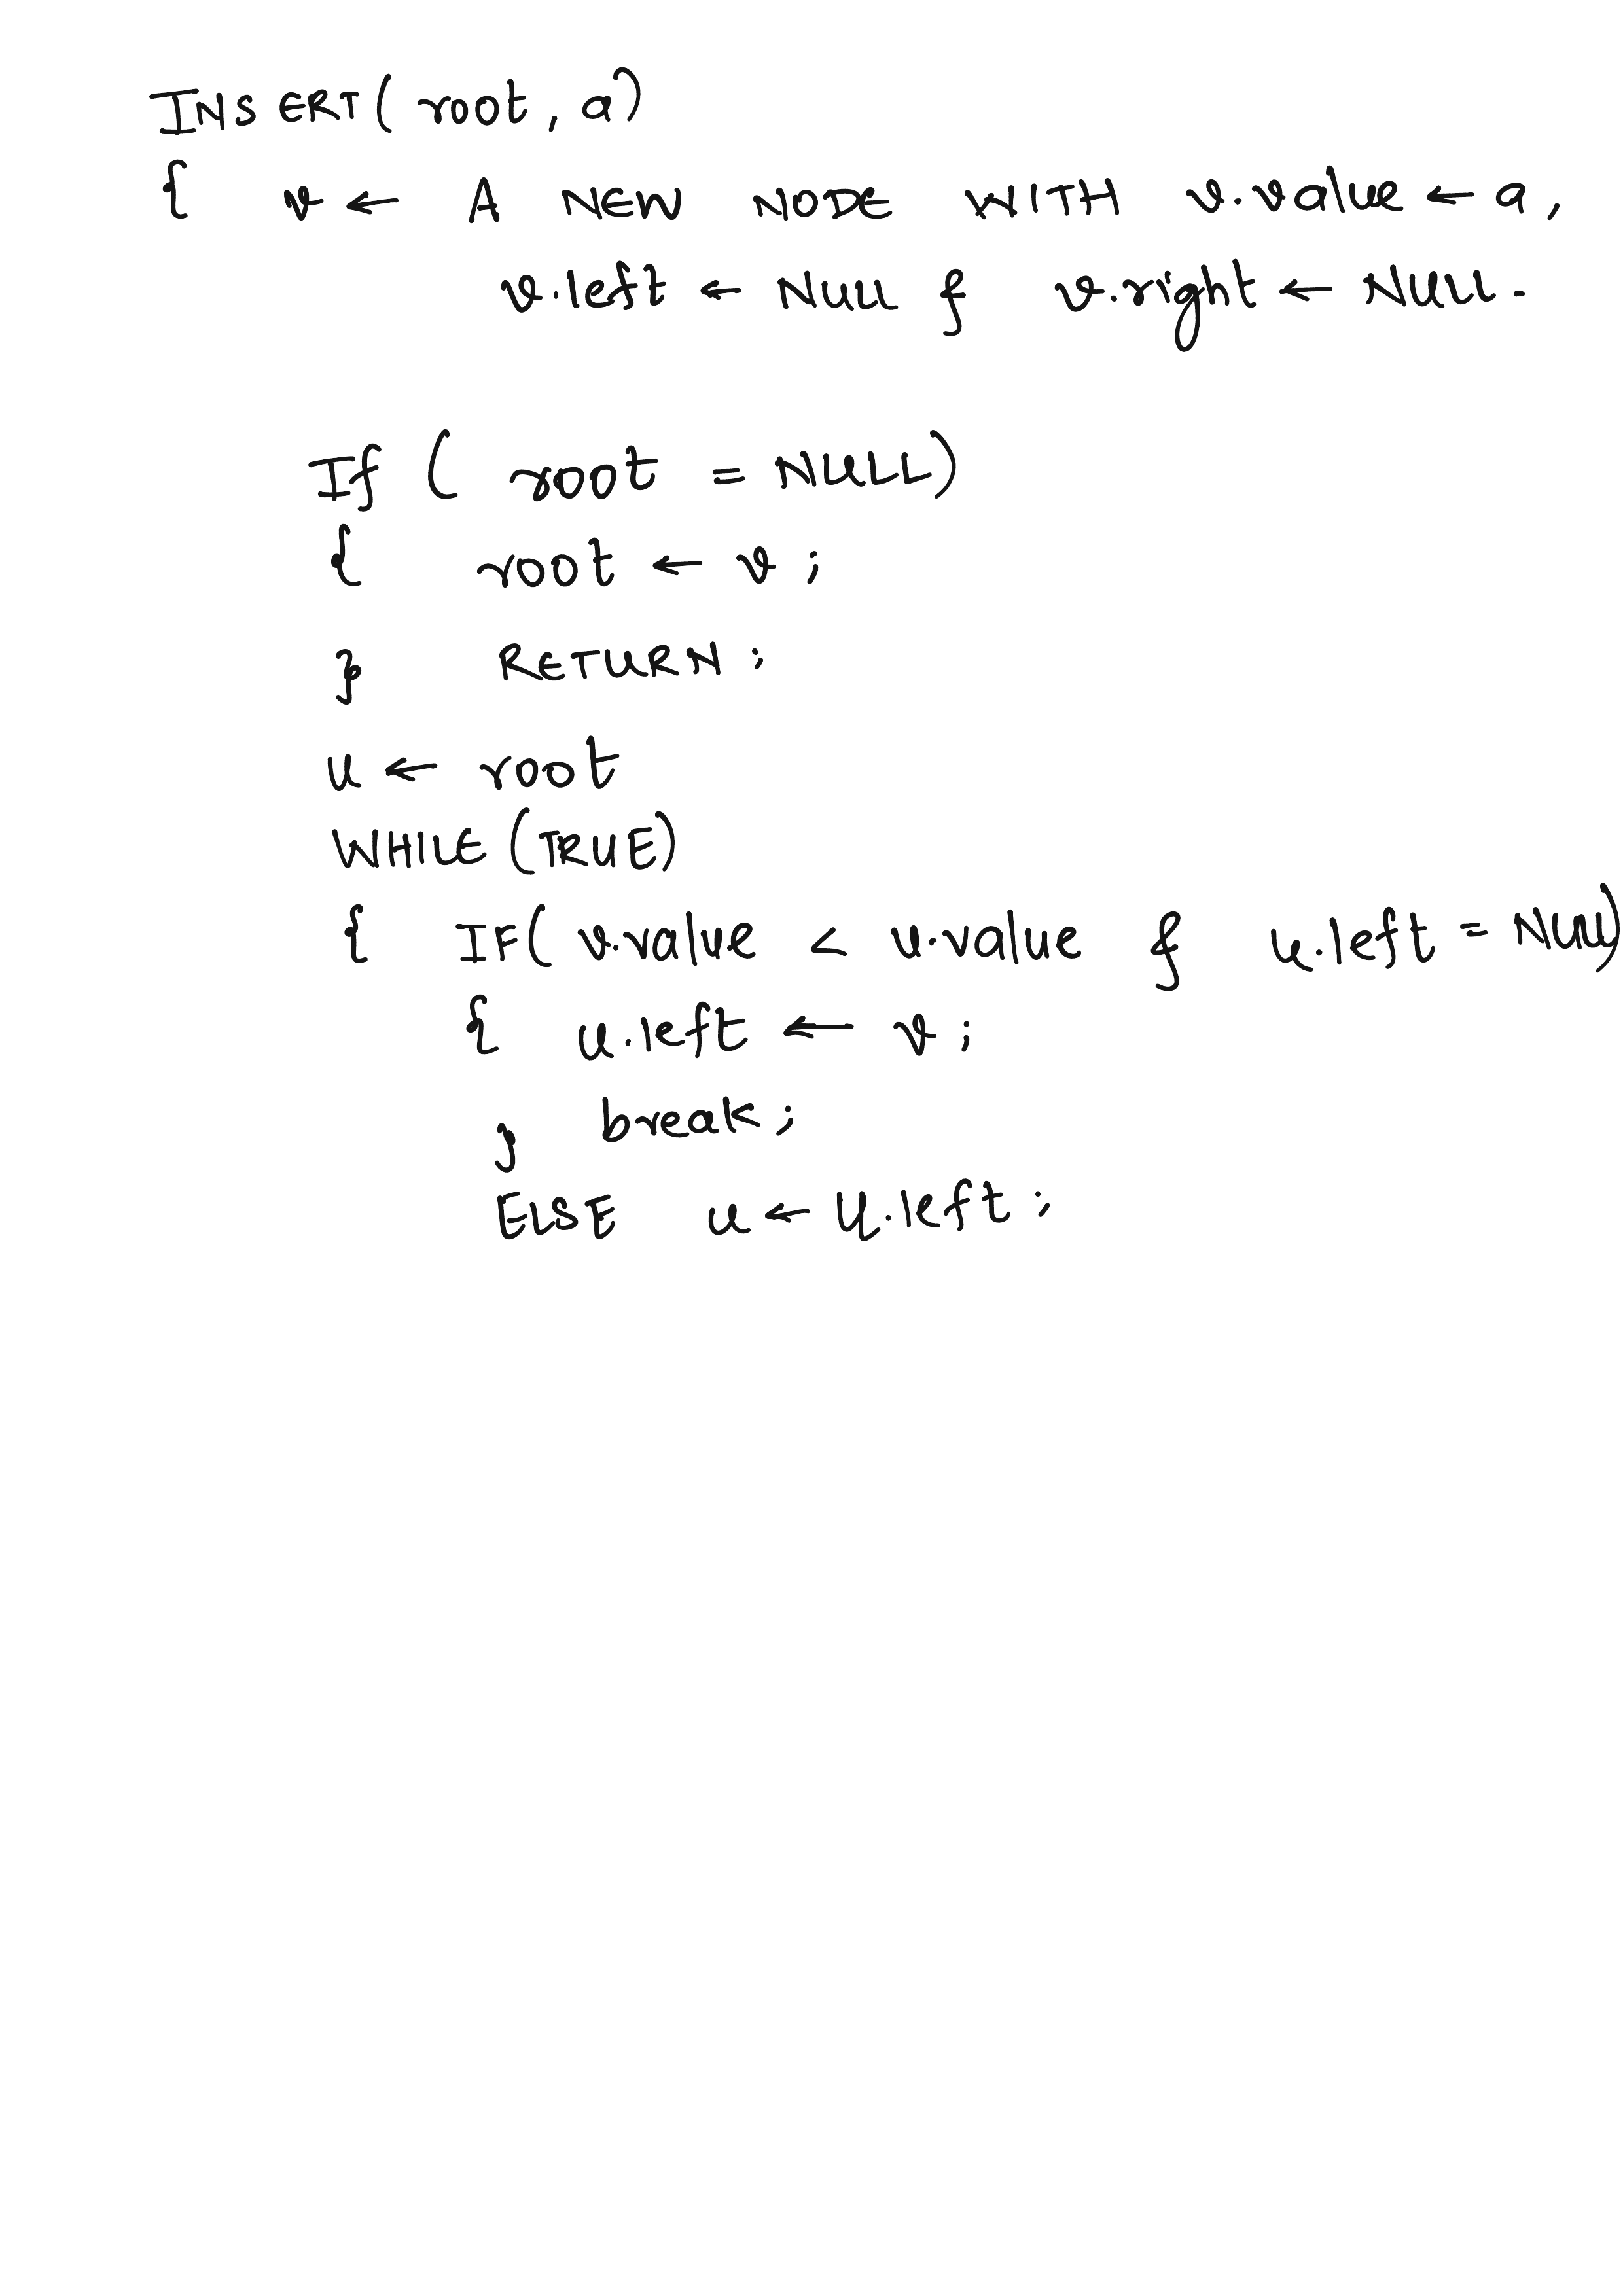 INSERT( root, a)
{ v ← A NEW NODE WITH v.value ← a,
v.left ← NULL & v.right ← NULL.
If ( root = NULL)
{ root ← v ;
} RETURN ;
u ← root
WHILE (TRUE)
{ IF( v.value < u.value & u.left = NULL)
{ u.left ← v ;
} break ;
ELSE u ← u.left ;